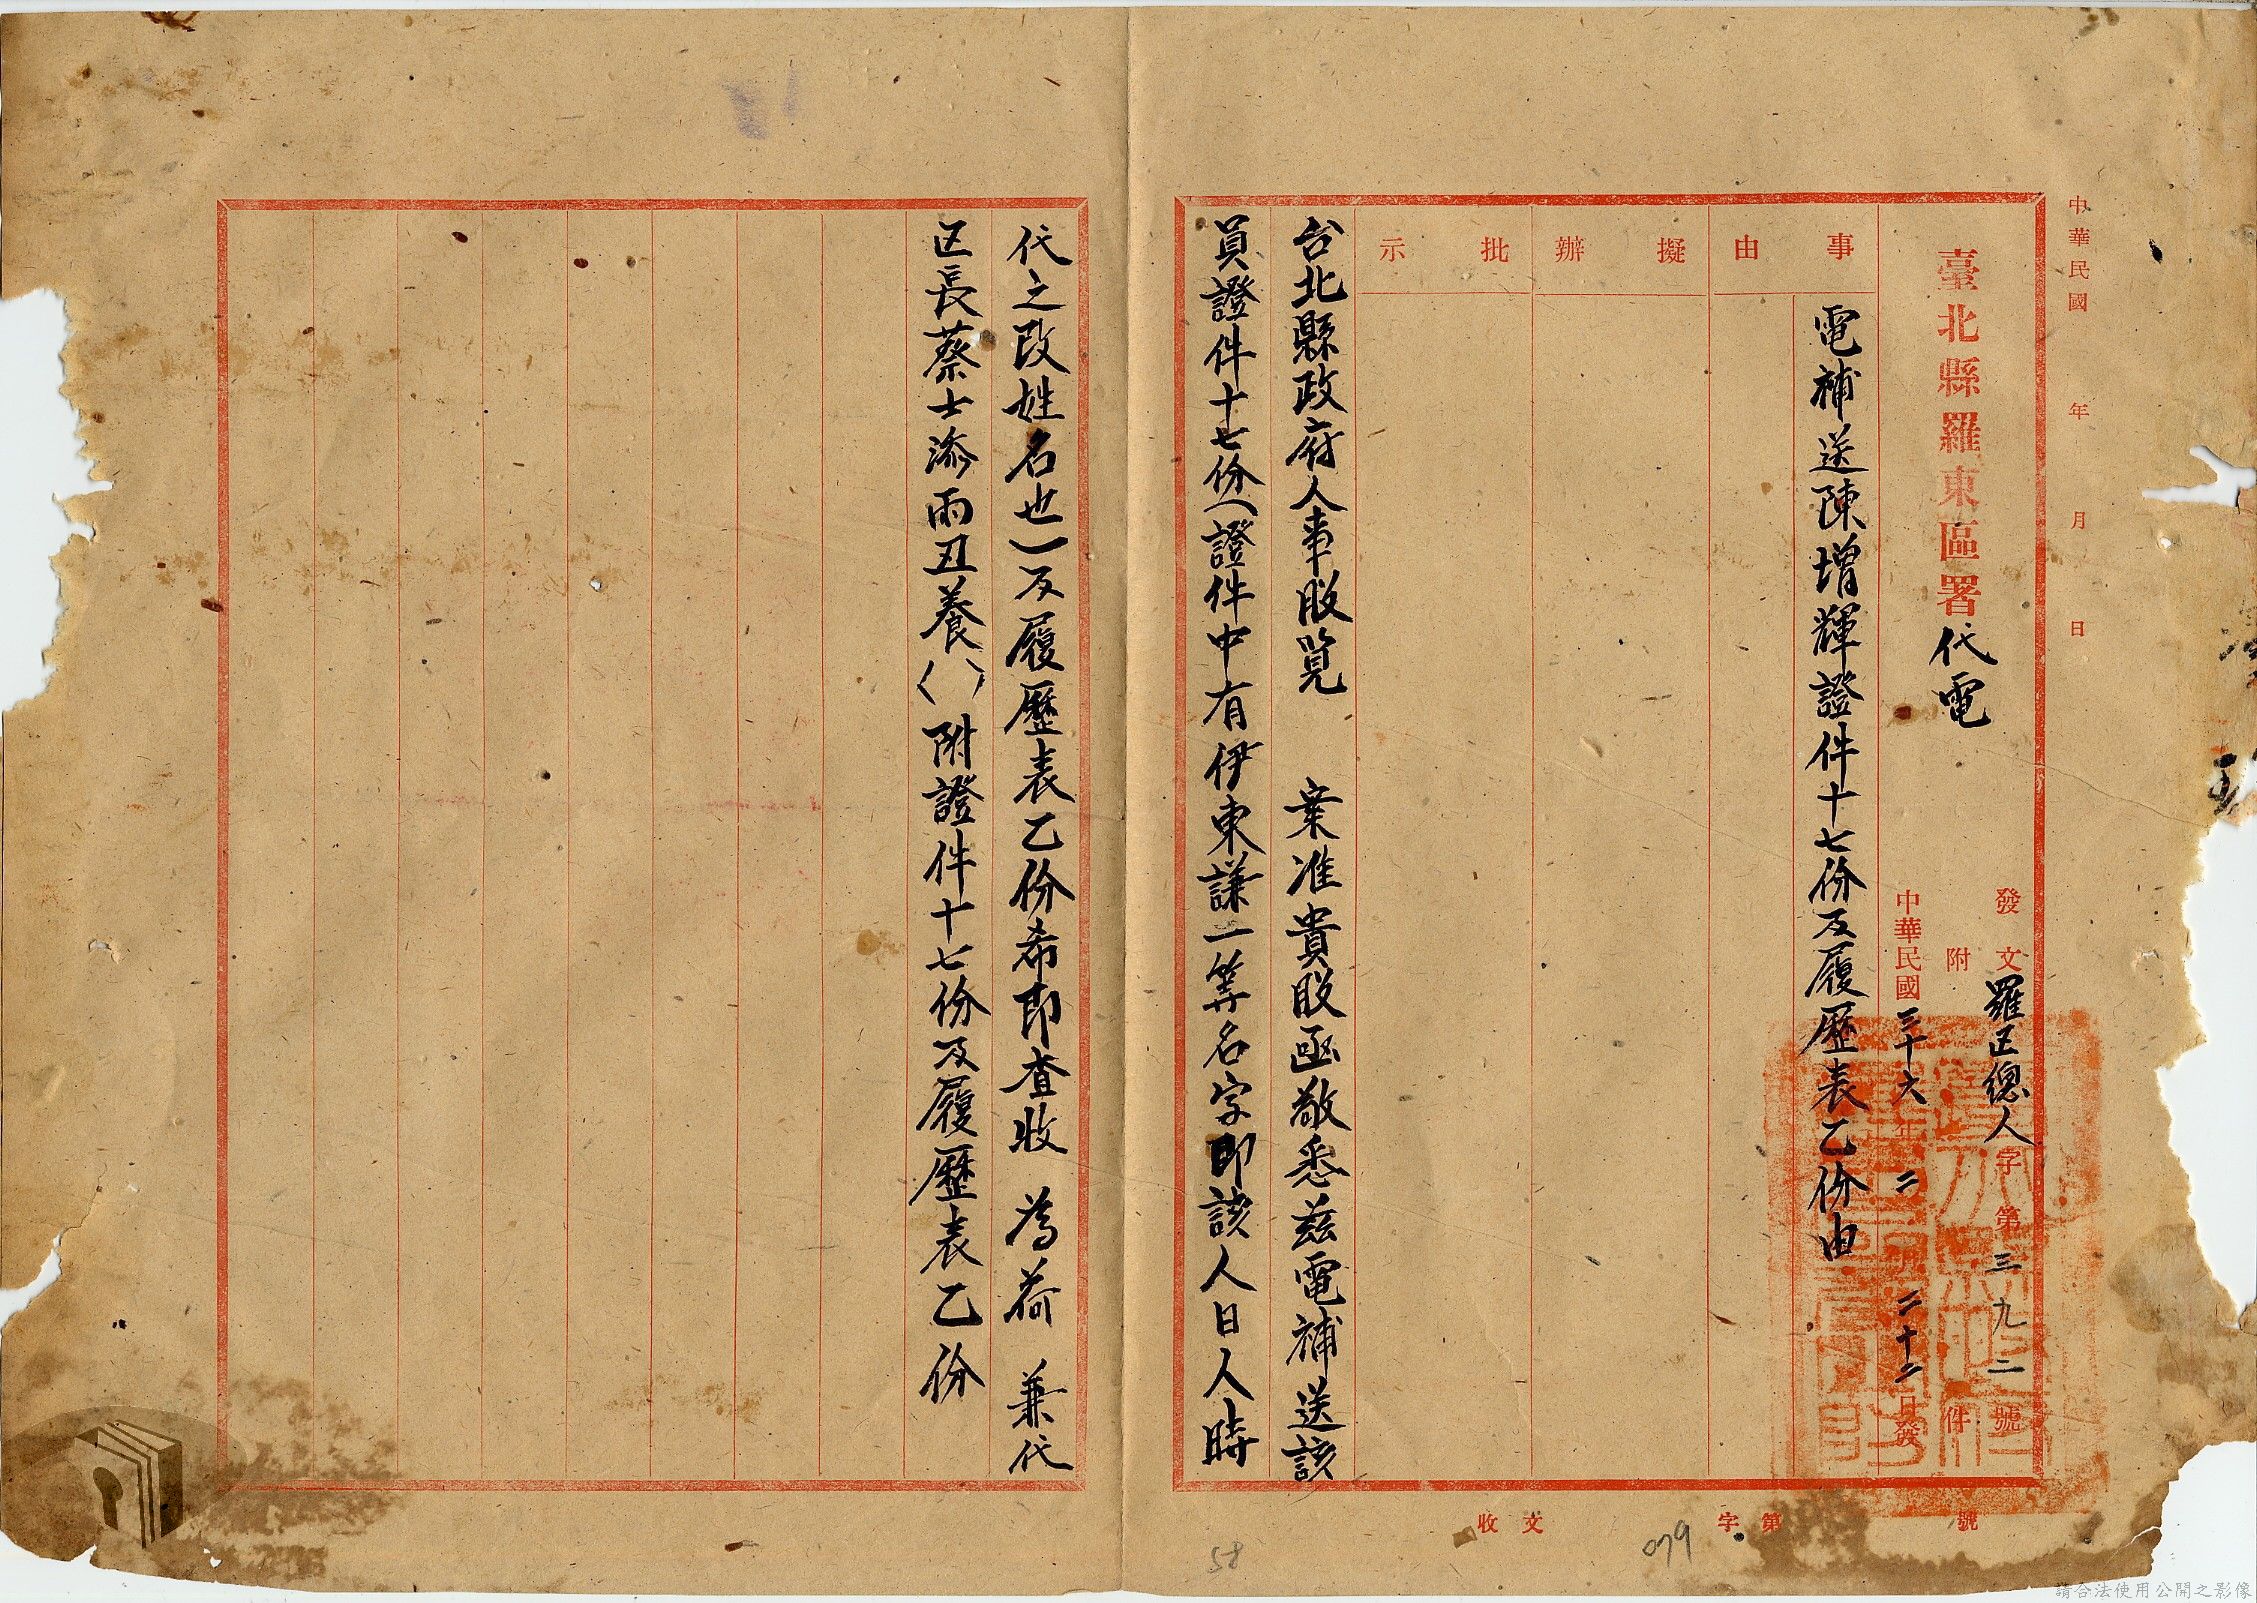 中華民國 年 月 日
臺北縣羅東區署代電
發文羅区總人字第三九二號
附 件
中華民國三十六年二月二十二日發
事由
電補送陳增輝證件十七份及履歷表乙份由
擬辦
批示
台北縣政府人事股覽 案准貴股函敬悉茲電補送該
員證件十七份（證件中有伊東謙一等名字即該人日人時
代之改姓名也）及履歷表乙份希即查收 為荷 兼代
区長蔡士添雨丑養（ ）附證件十七份及履歷表乙份
收文 字第 號
079
58
請合法使用公開之影像